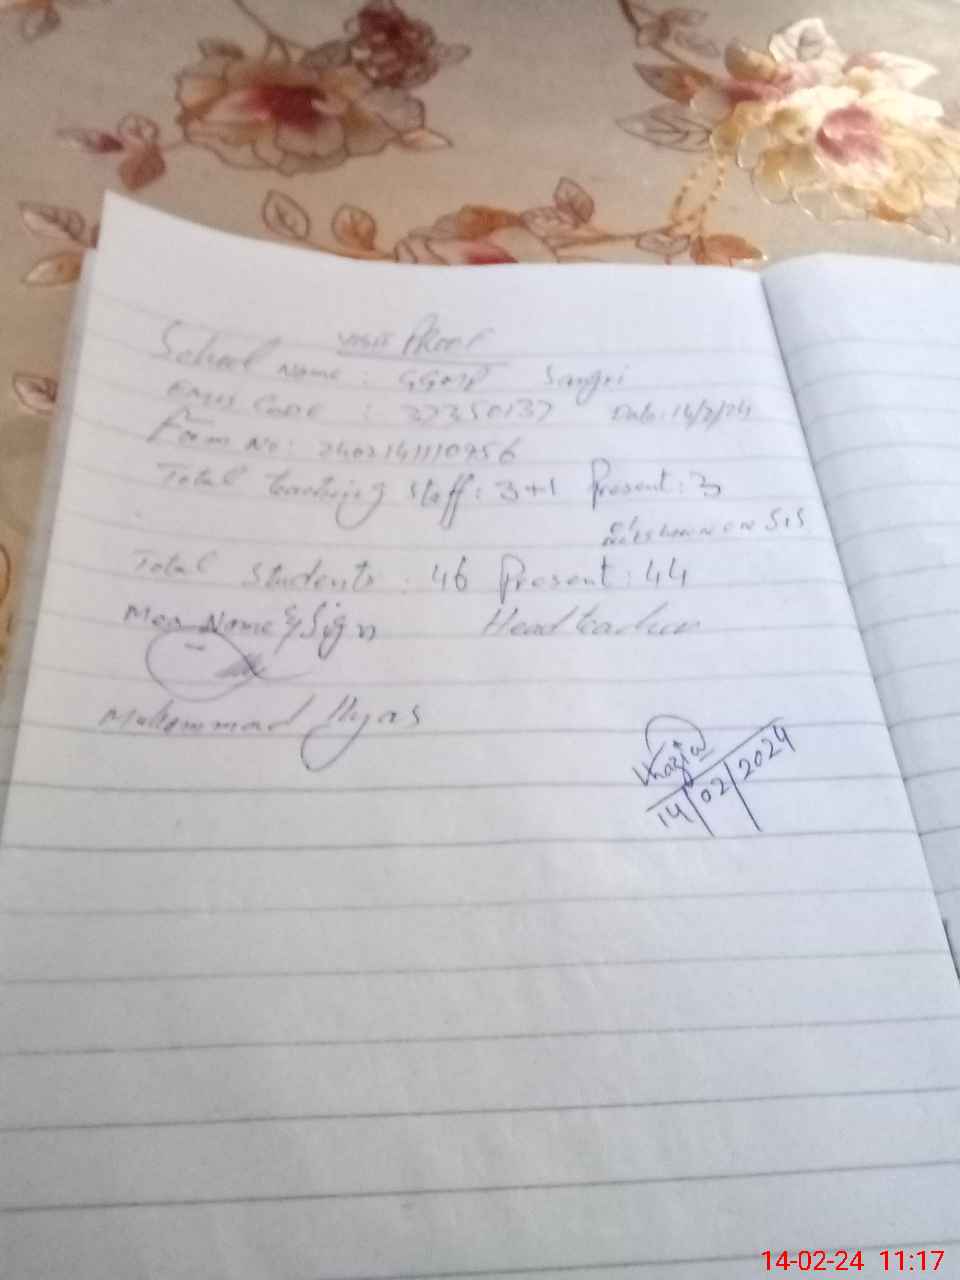 Visit Proof
School Name : Sangri
Emis Code : 37350137 Date: 14/2/24
Form No: 2402141110756
Total teaching staff: 3+1 Present: 3
on SIS
Total Students : 46 Present: 44
Mea Name & Sign Headteacher
Muhammad Ilyas
14/02/2024
14-02-24 11:17